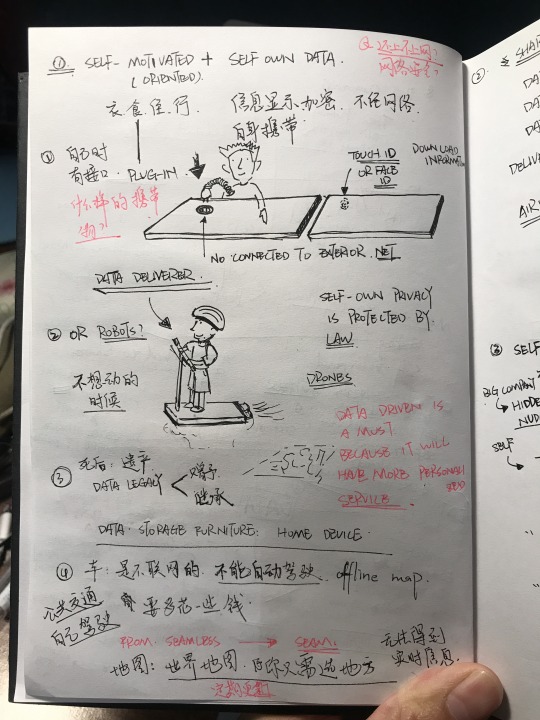 ① SELF-MOTIVATED + SELF OWN DATA.
(ORIENTED)
还上不上网?
网络安全?
衣食住行. 信息显示加密. 不经网络
自身携带
① 自己时
有接口. PLUG-IN
什么样的携带
TOUCH ID
OR FACE
ID
DOWNLOAD
INFORMATION
NO CONNECTED TO EXTERIOR NET
DATA DELIVERER.
SELF-OWN PRIVACY
IS PROTECTED BY.
LAW
② OR ROBOTS?
不想动的
时候
DRONES
DATA DRIVEN IS
A MUST
BECAUSE IT WILL
HAVE MORE PERSONALI
SED
SERVICE.
③ 死后: 遗产
DATA LEGACY
赠予
继承
DATA STORAGE FURNITURE: HOME DEVICE.
④ 车: 是不联网的. 不能自动驾驶. offline map.
公共交通
自己驾驶
要多花一些钱.
FROM SEAMLESS → SEAM.
无法得到
实时信息.
地图: 世界地图.
定期更新
② SHAR
DATA
DATA
DAT
DELIVE
AIR
③ SELF
BIG COMPANY
HIDDE
NUD
SELF